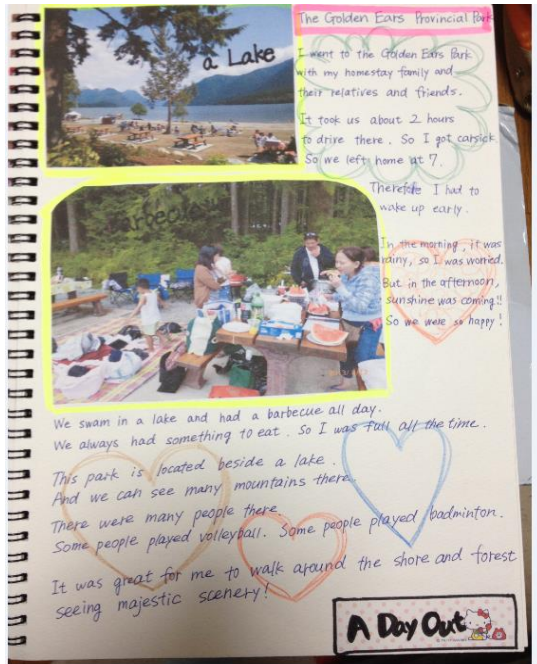 The Golden Ears Provincial Park
a Lake
I went to the Golden Ears Park
with my homestay family and
their relatives and friends.
It took us about 2 hours
to drive there. So I got carsick.
So we left home at 7.
Therefore I had to
wake up early.
In the morning, it was
rainy, so I was worried.
But in the afternoon,
sunshine was coming!!
So we were so happy!
We swam in a lake and had a barbecue all day.
We always had something to eat. So I was full all the time.
This park is located beside a lake.
And we can see many mountains there.
There were many people there.
Some people played volleyball. Some people played badminton.
It was great for me to walk around the shore and forest
seeing majestic scenery!
A Day Out